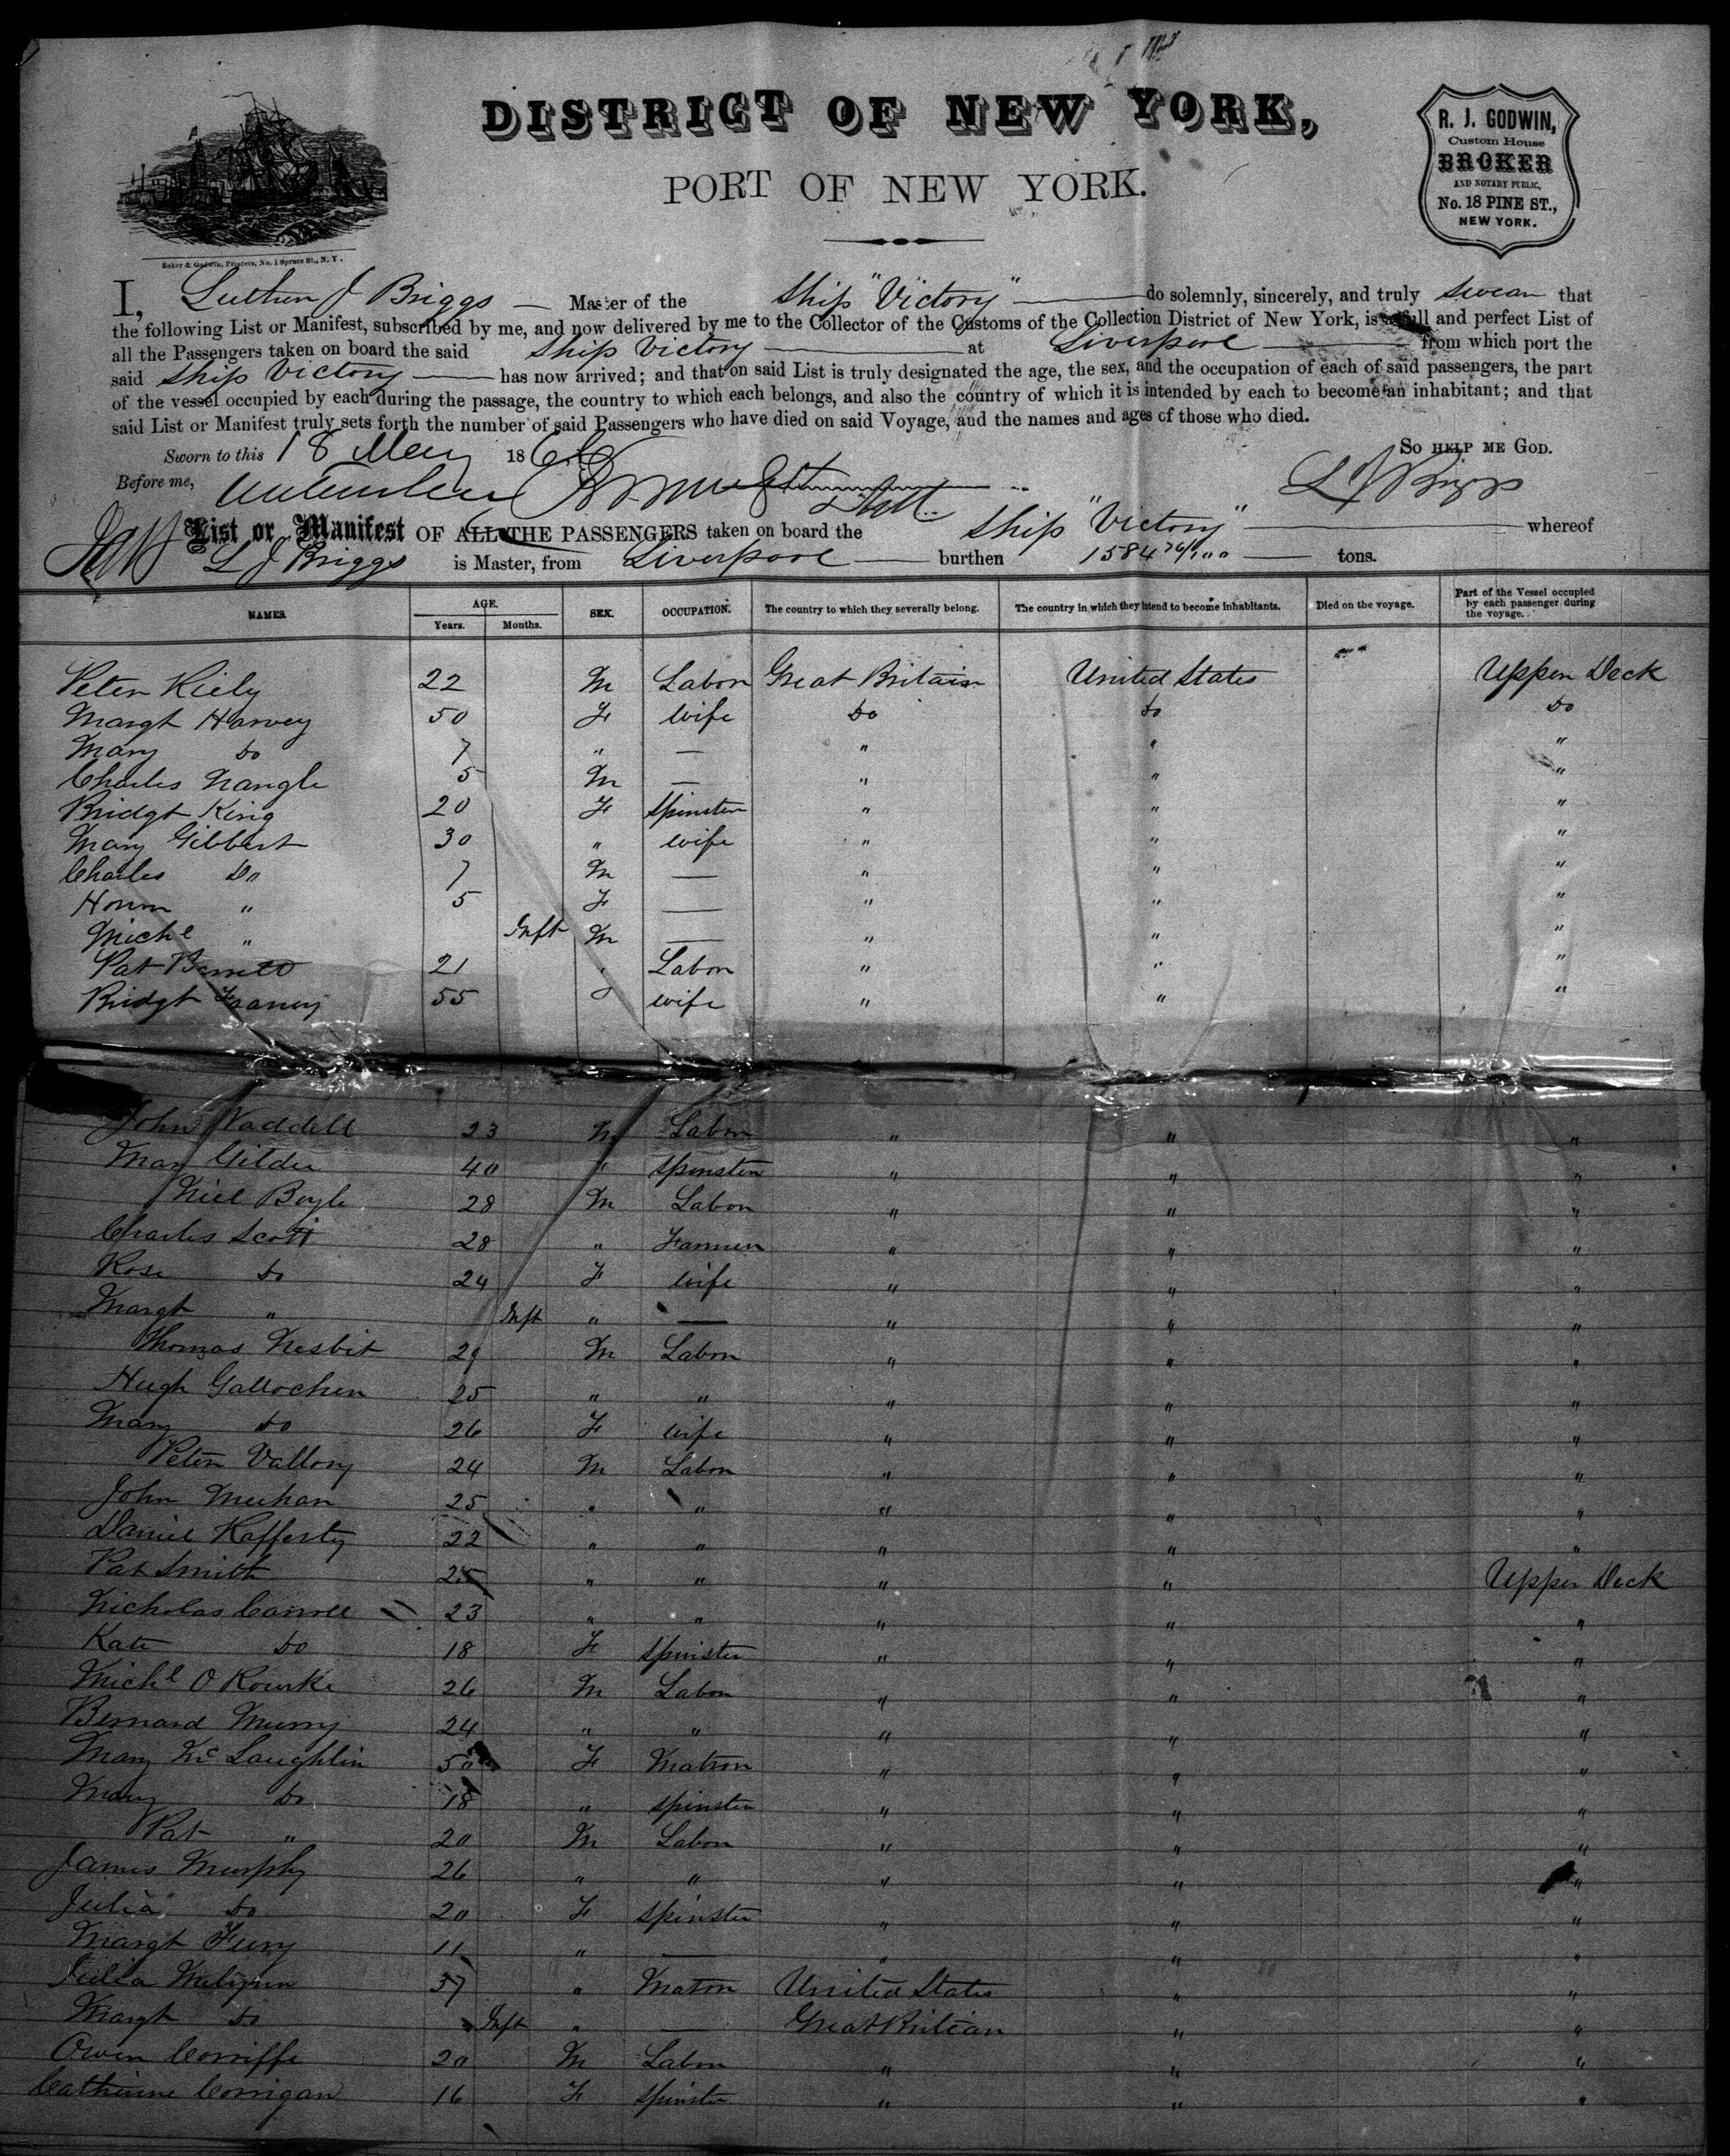 DISTRICT OF NEW YORK,
PORT OF NEW YORK.
Baker & Godwin, Printers, No. 1 Spruce St., N.Y.
R. J. GODWIN,
Custom House
BROKER
AND NOTARY PUBLIC,
No. 18 PINE ST.,
NEW YORK.
I, Luther J Briggs Master of the Ship "Victory" do solemnly, sincerely, and truly swear that
the following List or Manifest, subscribed by me, and now delivered by me to the Collector of the Customs of the Collection District of New York, is a full and perfect List of
all the Passengers taken on board the said Ship Victory at Liverpool from which port the
said Ship Victory has now arrived; and that on said List is truly designated the age, the sex, and the occupation of each of said passengers, the part
of the vessel occupied by each during the passage, the country to which each belongs, and also the country of which it is intended by each to become an inhabitant; and that
said List or Manifest truly sets forth the number of said Passengers who have died on said Voyage, and the names and ages of those who died.
Sworn to this 18 May 1866 SO HELP ME GOD.
Before me, L J Briggs
List or Manifest OF ALL THE PASSENGERS taken on board the Ship "Victory" whereof
L J Briggs is Master, from Liverpool burthen 1584 tons.
NAMES. AGE. Years. Months. SEX. OCCUPATION. The country to which they severally belong. The country in which they intend to become inhabitants. Died on the voyage. Part of the Vessel occupied by each passenger during the voyage.
Peter Kiely 22 M Labor Great Britain United States Upper Deck
Margt Harvey 50 F wife Do Do Do
Mary Do 7 " — " " "
Charles Nangle 5 M — " " "
Bridgt King 20 F Spinster " " "
Mary Gibbert 30 " wife " " "
Charles Do 7 M — " " "
Honor " 5 F — " " "
Michl " Inft M — " " "
Pat Barrett 21 " Labor " " "
Bridgt Franey 55 " wife " " "
John Waddell 23 M Labor " " "
Mary Gilder 40 " Spinster " " "
Niel Boyle 28 M Labor " " "
Charles Scott 28 " Farmer " " "
Rose Do 24 F wife " " "
Margt " Inft " — " " "
Thomas Nesbit 29 M Labor " " "
Hugh Gallocher 25 " " " " "
Mary Do 26 F wife " " "
Peter Vallory 24 M Labor " " "
John Meehan 25 " " " " "
Daniel Rafferty 22 " " " " "
Pat Smith 25 " " " " Upper Deck
Nicholas Carroll 23 " " " " "
Kate Do 18 F Spinster " " "
Michl O Rourke 26 M Labor " " "
Bernard Murry 24 " " " " "
Mary McLaughlin 50 F Matron " " "
Mary Do 18 " Spinster " " "
Pat " 20 M Labor " " "
James Murphy 26 " " " " "
Julia Do 20 F Spinster " " "
Margt Fury 11 " — " " "
Julia 37 " Matron United States " "
Margt Do Inft " — Great Britian " "
Owen 20 M Labor " " "
Catherine Corrigan 16 F Spinster " " "